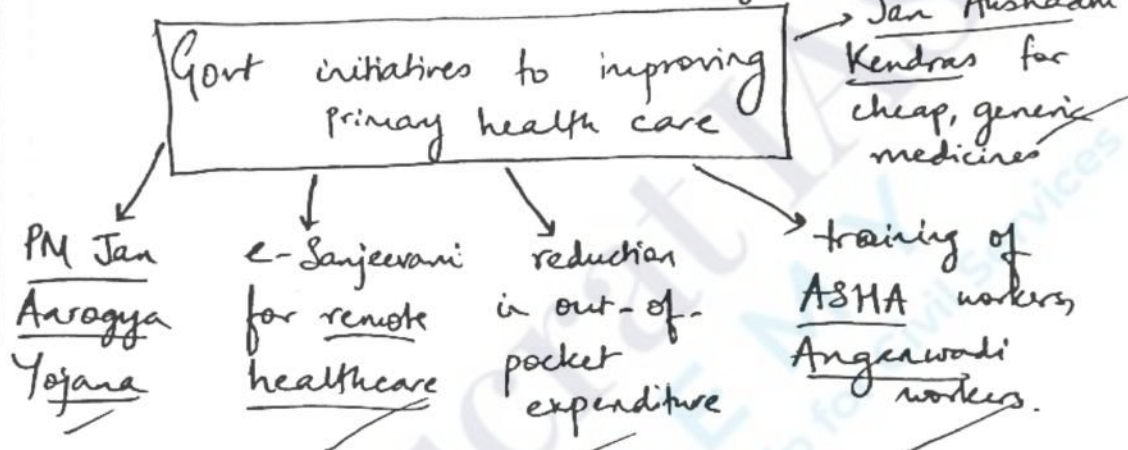 Govt initiatives to improving
primary health care
Jan Aushadhi
Kendras for
cheap, generic
medicines
PM Jan
Aarogya
Yojana
e-Sanjeevani
for remote
healthcare
reduction
in out-of-
pocket
expenditure
training of
ASHA workers,
Anganwadi
workers.